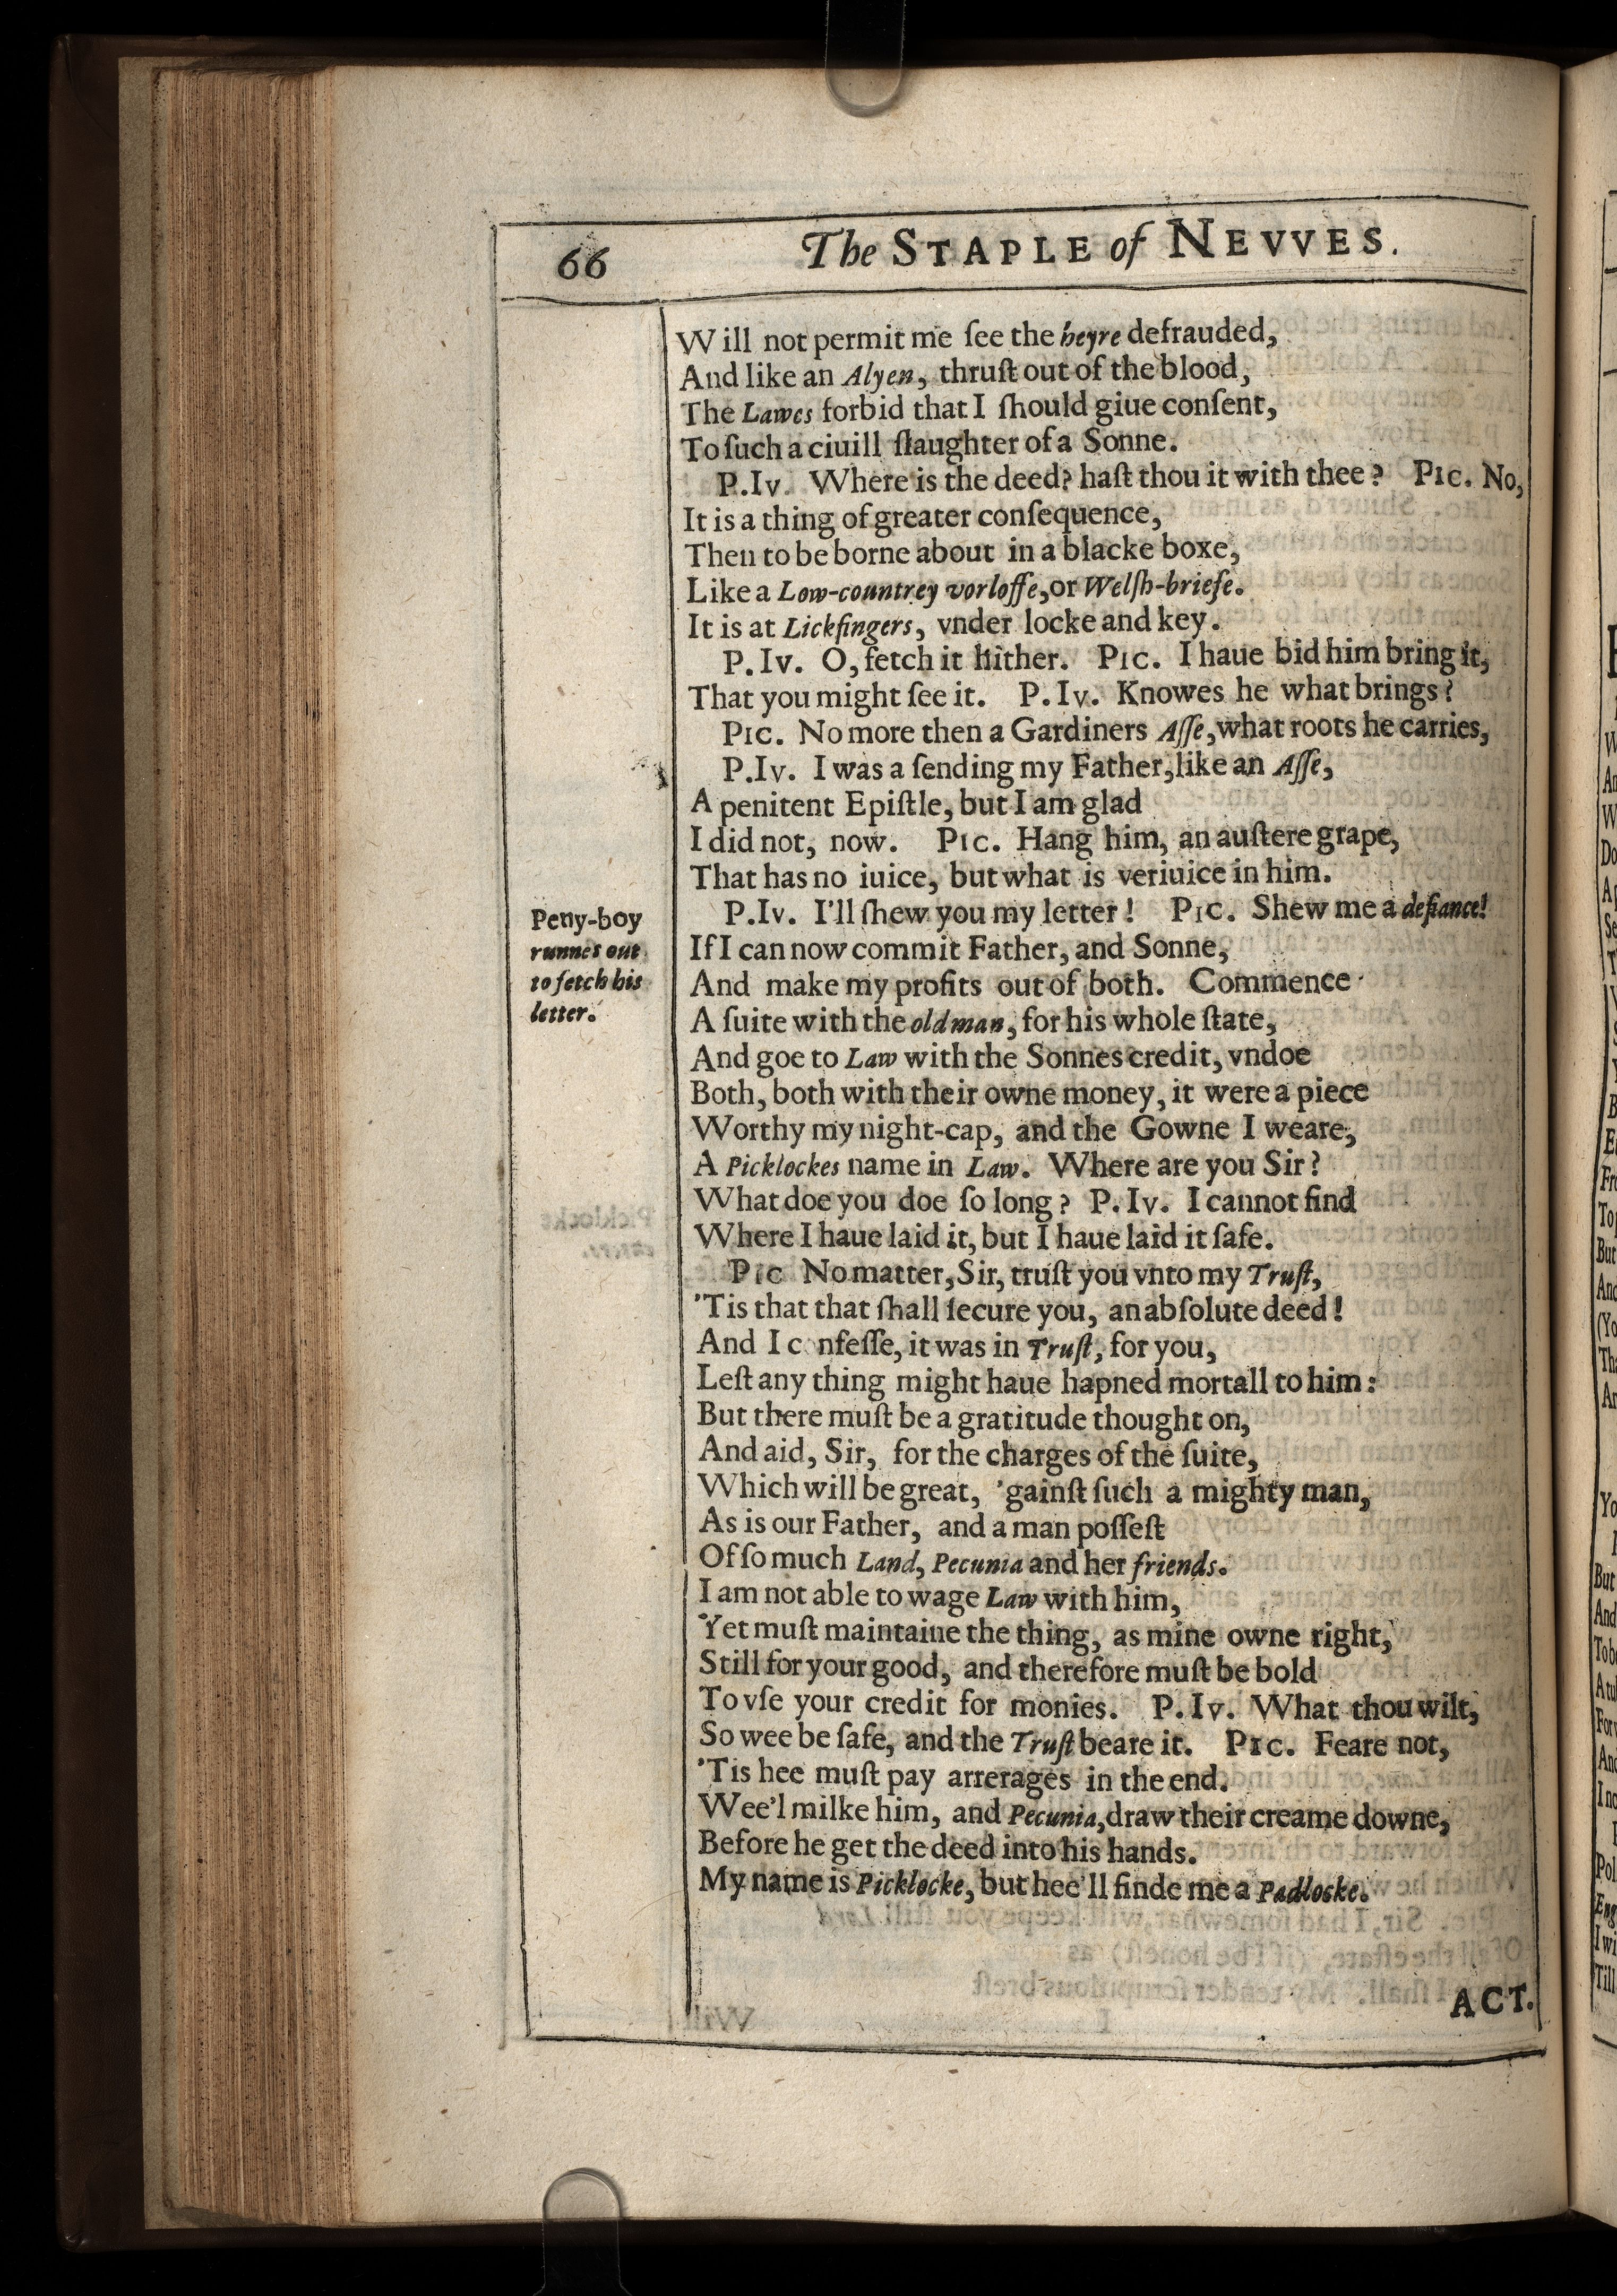 66
The STAPLE of NEVVES.
Will not permit me ſee the heyre defrauded,
And like an Alyen, thruſt out of the blood,
The Lawes forbid that I ſhould giue conſent,
To ſuch a ciuill ſlaughter of a Sonne.
P.Iv. Where is the deed? haſt thou it with thee? PIC. No,
It is a thing of greater conſequence,
Then to be borne about in a blacke boxe,
Like a Low-countrey vorloffe, or Welſh-briefe.
It is at Lickfingers, vnder locke and key.
P.Iv. O, fetch it hither. PIC. I haue bid him bring it,
That you might ſee it. P.Iv. Knowes he what brings?
PIC. No more then a Gardiners Aſſe, what roots he carries,
P.Iv. I was a ſending my Father, like an Aſſe,
A penitent Epiſtle, but I am glad
I did not, now. PIC. Hang him, an auſtere grape,
That has no iuice, but what is veriuice in him.
Peny-boy
runnes out
to fetch his
letter.
P.Iv. I'll ſhew you my letter! PIC. Shew me a defiance!
If I can now commit Father, and Sonne,
And make my profits out of both. Commence
A ſuite with the old man, for his whole ſtate,
And goe to Law with the Sonnes credit, vndoe
Both, both with their owne money, it were a piece
Worthy my night-cap, and the Gowne I weare,
A Picklockes name in Law. Where are you Sir?
What doe you doe ſo long? P.Iv. I cannot find
Where I haue laid it, but I haue laid it ſafe.
PIC No matter, Sir, truſt you vnto my Truſt,
'Tis that that ſhall ſecure you, an abſolute deed!
And I c nfeſſe, it was in Truſt, for you,
Leſt any thing might haue hapned mortall to him:
But there muſt be a gratitude thought on,
And aid, Sir, for the charges of the ſuite,
Which will be great, 'gainſt ſuch a mighty man,
As is our Father, and a man poſſeſt
Of ſo much Land, Pecunia and her friends.
I am not able to wage Law with him,
Yet muſt maintaine the thing, as mine owne right,
Still for your good, and therefore muſt be bold
To vſe your credit for monies. P.Iv. What thou wilt,
So wee be ſafe, and the Truſt beare it. PIC. Feare not,
'Tis hee muſt pay arrerages in the end.
Wee'l milke him, and Pecunia, draw their creame downe,
Before he get the deed into his hands.
My name is Picklocke, but hee'll finde me a Padlocke.
ACT.